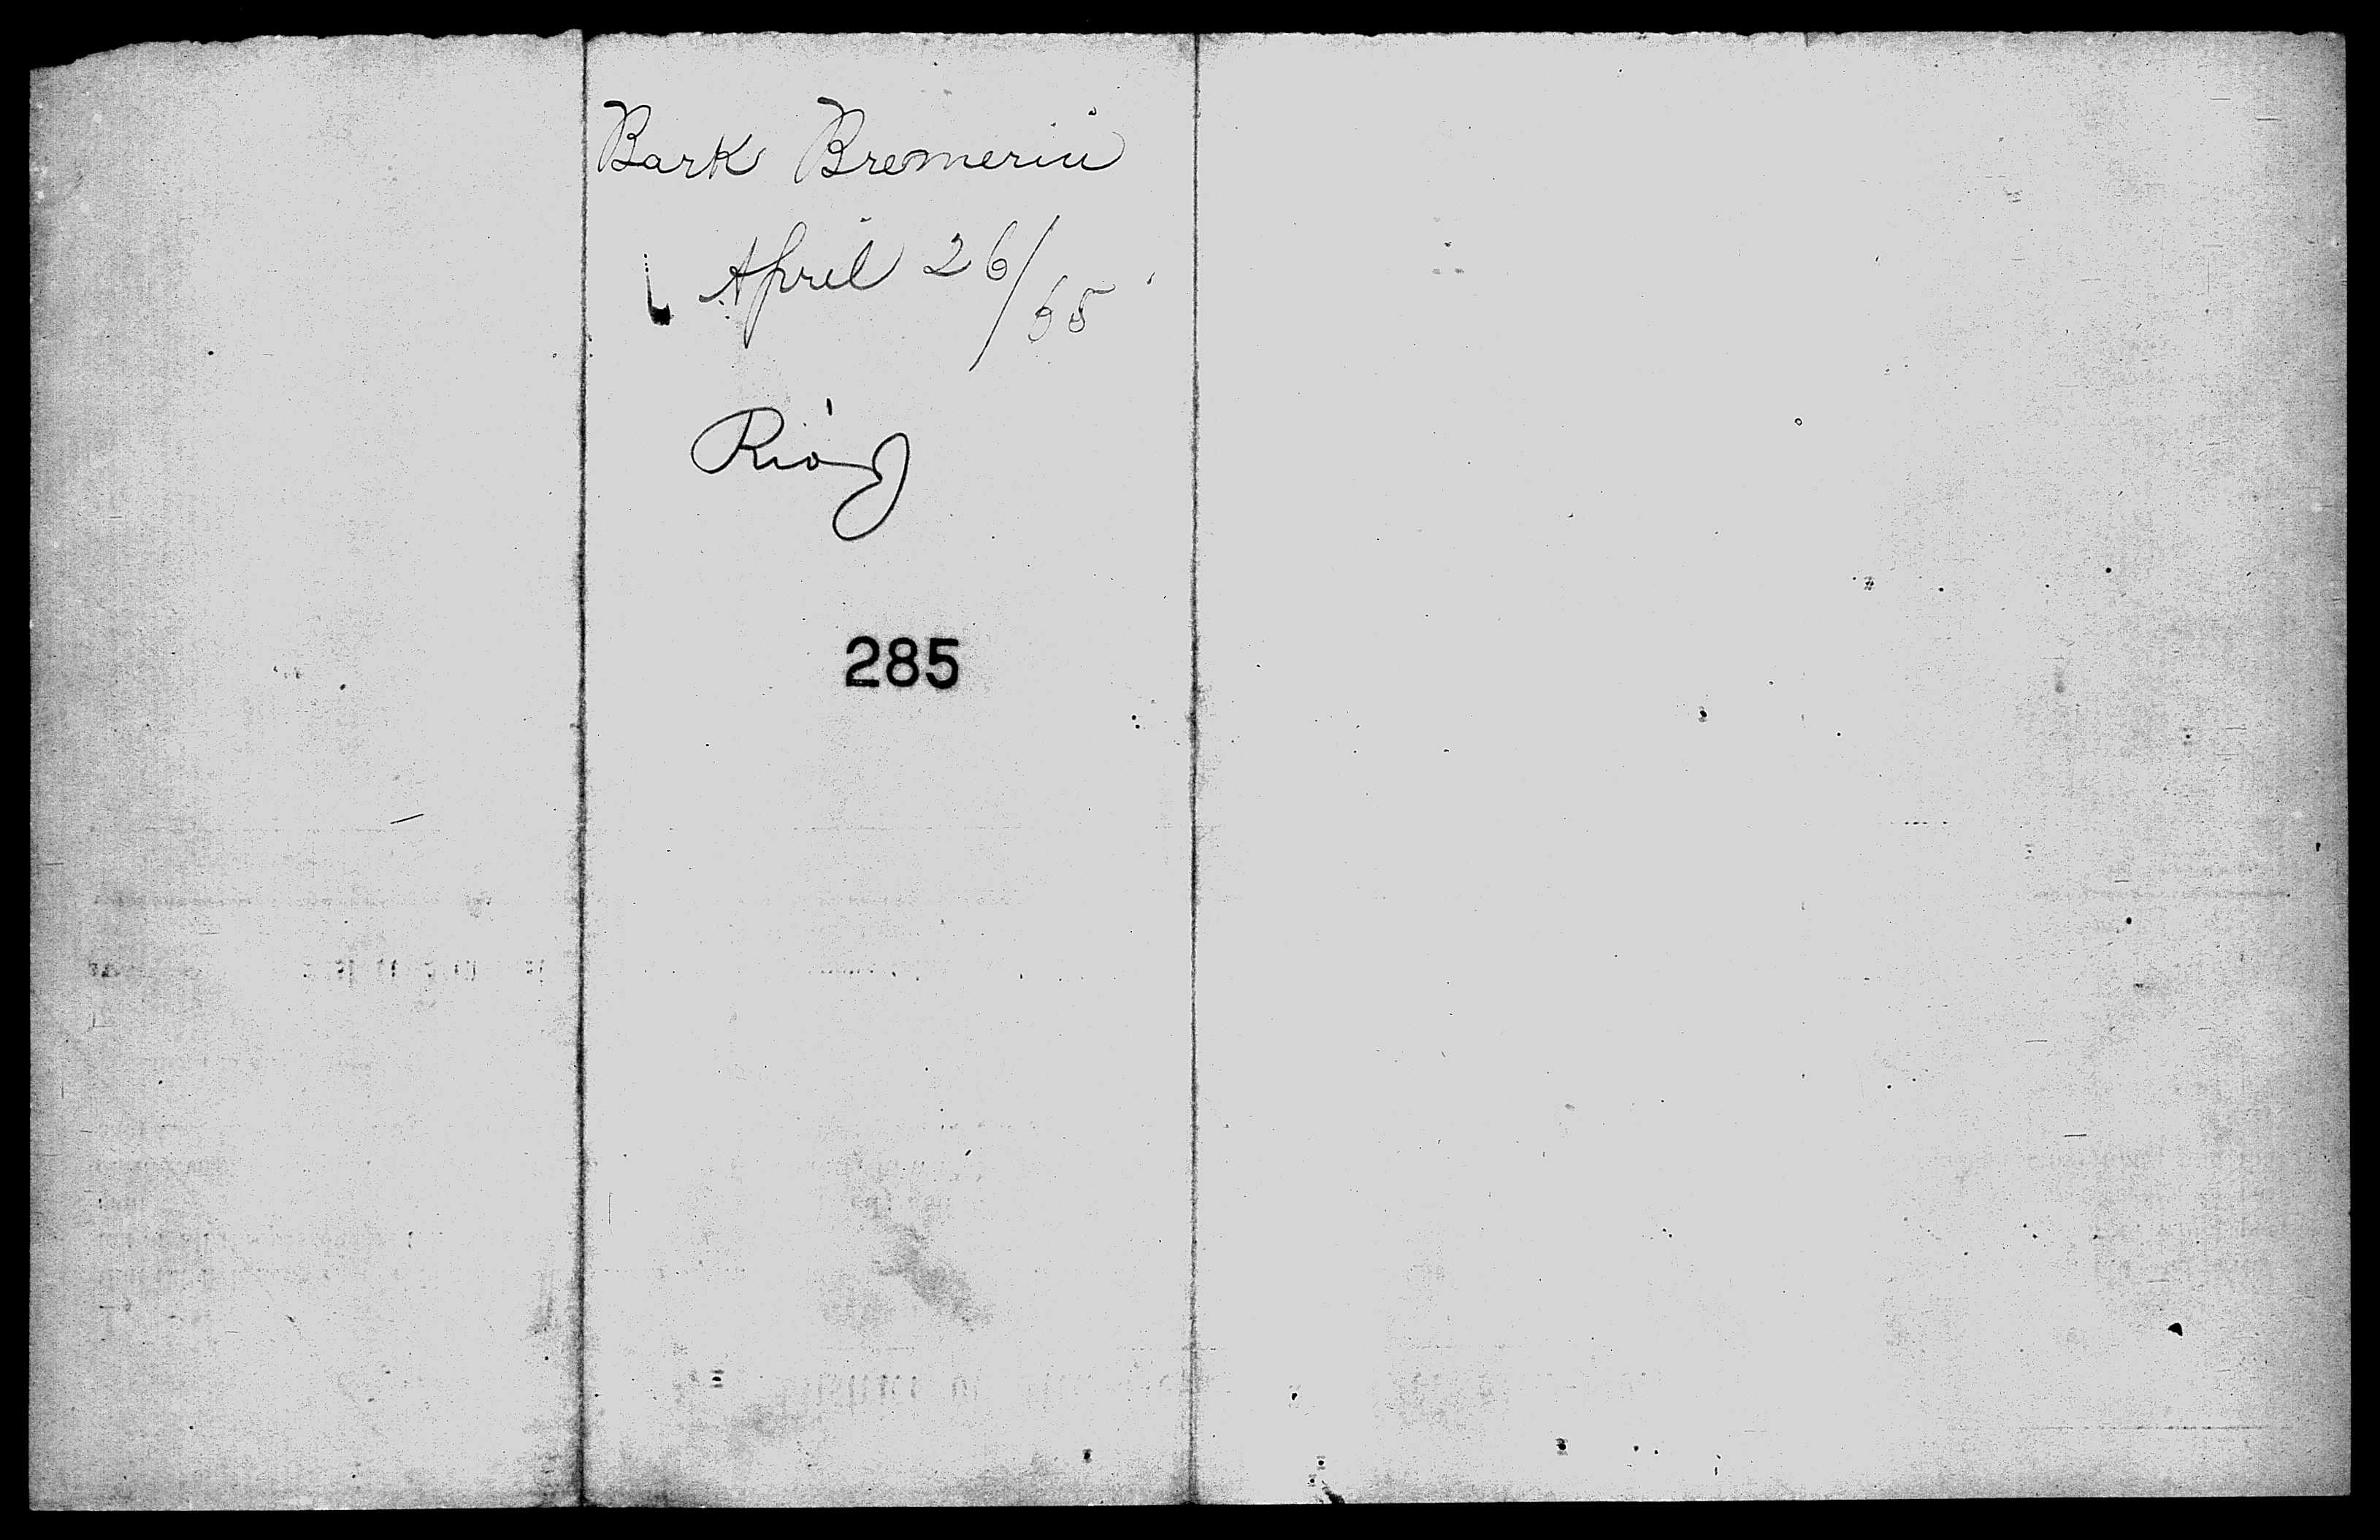 Bark Bremerin
April 26/65
Rió
285